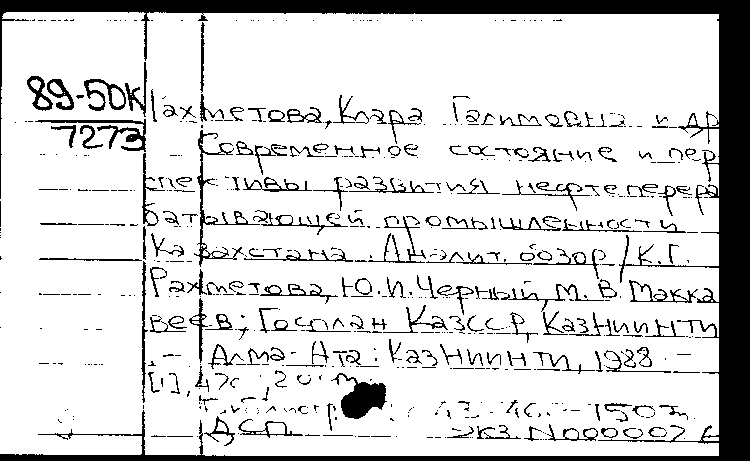 89-50К
7273
Рахметова, Клара Галимовна и др
Современное состояние и пер
спективы развития нефтеперера
батывающей промышленности
Казахстана. Аналит. обзор / К.Г.
Рахметова, Ю.И. Черный, М. В. Макка
веев; Госплан КазССР, КазНИИНТИ
.- Алма-Ата: КазНИИНТИ, 1988 -
[1], 47с ; 20 см
150
ДСП экз. N000007